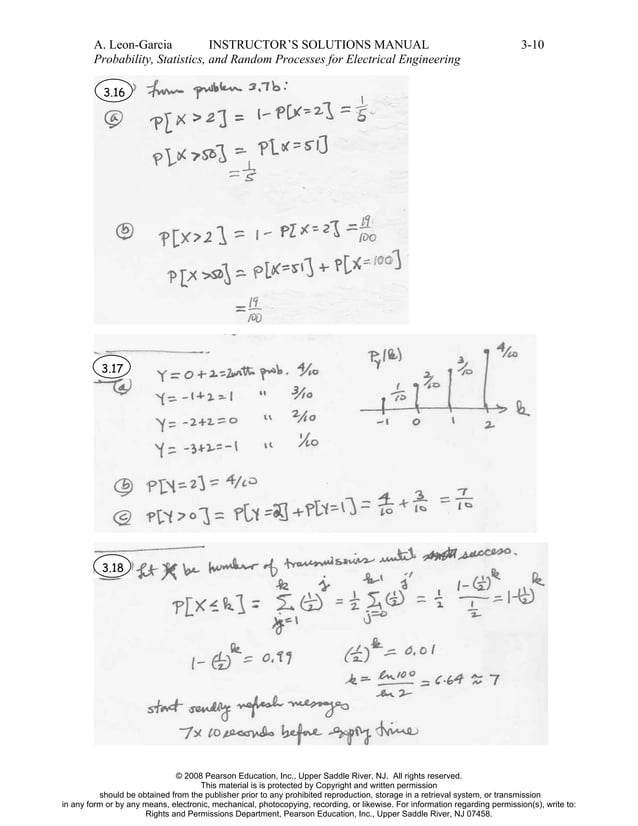 A. Leon-Garcia INSTRUCTOR'S SOLUTIONS MANUAL 3-10
Probability, Statistics, and Random Processes for Electrical Engineering
3.16 from problem 3.7b:
(a) P[X > 2] = 1 - P[X = 2] = 1/5
P[X > 50] = P[X = 51]
= 1/5
(b) P[X > 2] = 1 - P[X = 2] = 19/100
P[X > 50] = P[X = 51] + P[X = 100]
= 19/100
3.17
(a) Y = 0 + 2 = 2 with prob. 4/10
Y = -1 + 2 = 1 " 3/10
Y = -2 + 2 = 0 " 2/10
Y = -3 + 2 = -1 " 1/10
P_Y(k)
1/10 2/10 3/10 4/10
-1 0 1 2 k
(b) P[Y = 2] = 4/10
(c) P[Y > 0] = P[Y = 2] + P[Y = 1] = 4/10 + 3/10 = 7/10
3.18 Let X be number of transmissions until success.
P[X ≤ k] = Σ_{j=1}^{k} (1/2)^j = 1/2 Σ_{j'=0}^{k-1} (1/2)^{j'} = 1/2 (1 - (1/2)^k)/(1/2) = 1 - (1/2)^k
1 - (1/2)^k = 0.99 (1/2)^k = 0.01
k = ln 100 / ln 2 = 6.64 ≈ 7
start sending refresh messages
7 x 10 seconds before expiry time
© 2008 Pearson Education, Inc., Upper Saddle River, NJ. All rights reserved.
This material is is protected by Copyright and written permission
should be obtained from the publisher prior to any prohibited reproduction, storage in a retrieval system, or transmission
in any form or by any means, electronic, mechanical, photocopying, recording, or likewise. For information regarding permission(s), write to:
Rights and Permissions Department, Pearson Education, Inc., Upper Saddle River, NJ 07458.